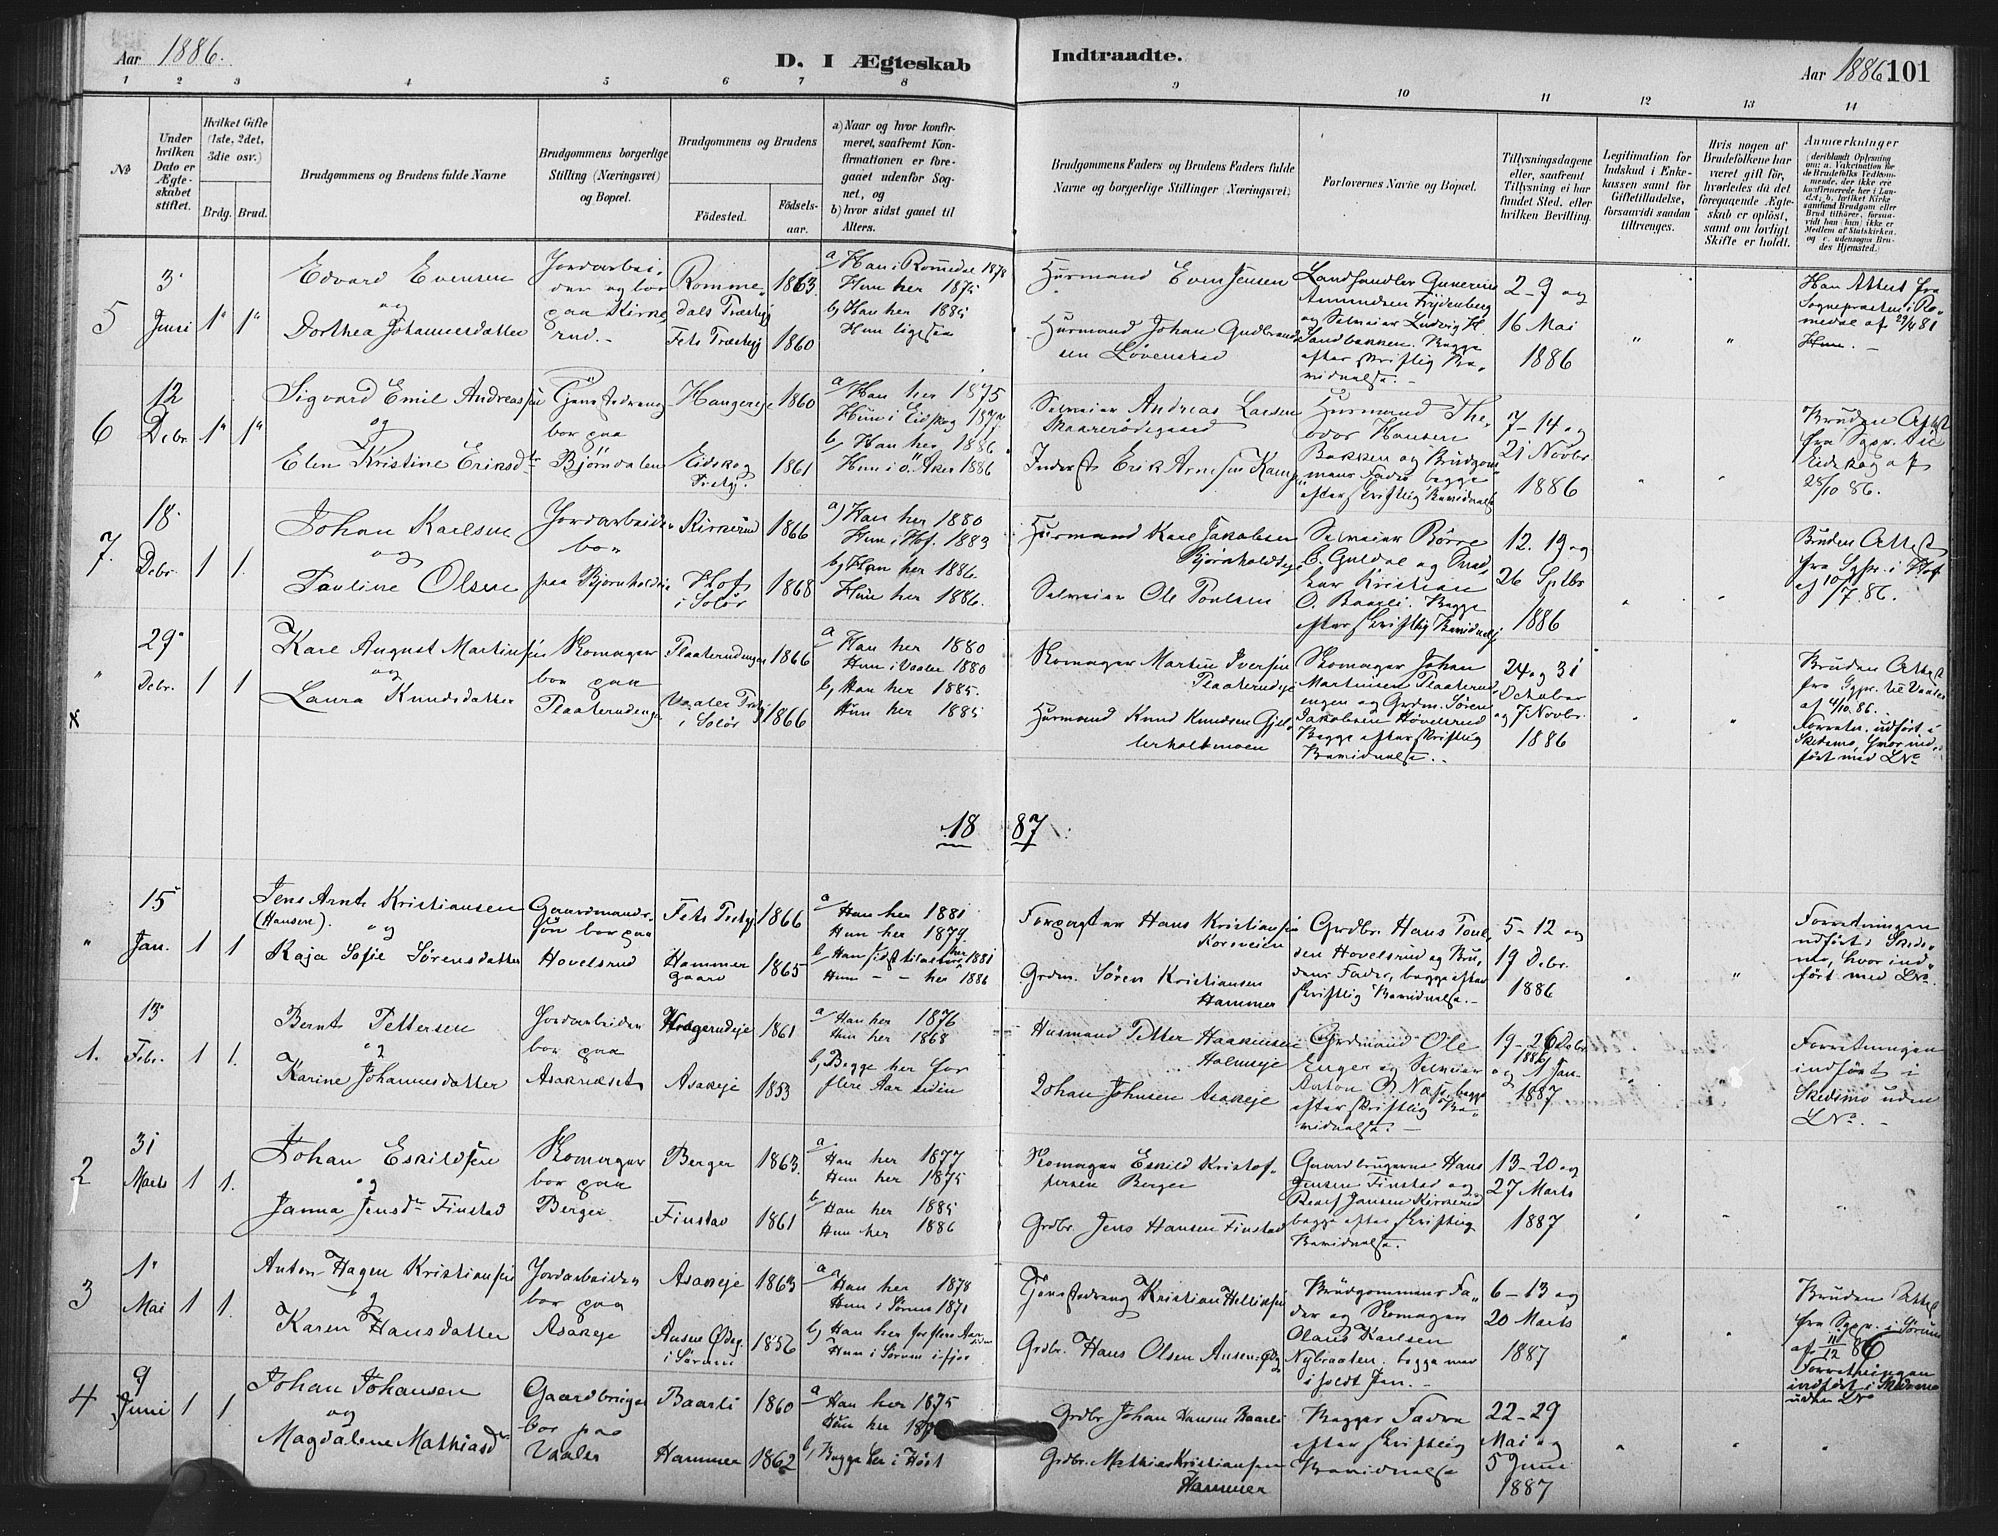 Aar 1886.
D. I Ægteskab Indtraadte.
Aar 1886 101
1 2 3 4 5 6 7 8 9 10 11 12 13 14
№
Under hvilken Dato er Ægteskabet stiftet.
Hvilket Gifte (1ste, 2det, 3die osv.)
Brdg. Brud.
Brudgommens og Brudens fulde Navne
Brudgommens borgerlige Stilling (Næringsvei) og Bopæl.
Brudgommens og Brudens
Födested. Födselsaar.
a) Naar og hvor konfirmeret, saafremt Konfirmationen er foregaaet udenfor Sognet, og
b) hvor sidst gaaet til Alters.
Brudgommens Faders og Brudens Faders fulde Navne og borgerlige Stillinger (Næringsvei)
Forlovernes Navne og Bopæl.
Tillysningsdagene eller, saafremt Tillysning ei har fundet Sted, efter hvilken Bevilling.
Legitimation for Indskud i Enkekassen samt for Giftetilladelse, forsaavidt sandan tiltrænges.
Hvis nogen af Brudefolkene har været gift før, hvorledes da det foregaaende Ægteskab er oplöst, samt om lovligt Skifte er holdt.
Anmerkninger
5 3 Juni 1" 1"
Edvard Evensen
og
Dorthea Johannesdatter
Jordarbeider og bor paa Kirkerud.
Rommedals Præstgj 1863.
Fets Præstgj 1860
a Han i Romedal 1878
Hun her 1875
b) Han her 1885
Hun ligesaa
Husmand Even Jensen
Husmand Johan Gudbrandsen Løvenstad
Landhandler Gunerius Amundsen Frydenberg og Selveier Ludvig H. Sandbakken. Begge efter skriftlig Bevidnelse.
2-9 og 16 Mai 1886
Han Attest fra Sognepræsten i Romedal af 29/4 81
6 12 Debr. 1" 1"
Sigvard Emil Andreassen
og
Elen Kristine Eriksdtr
Tjenestedreng bor paa Bjørndalen
1860
Eidskog Prestgj. 1861
a/ Han her 1875
Hun i Eidskog 1877
b/ Han her 1886
Hun i ö. Aker 1886
Selveier Andreas Larsen Skaarerødegaard
Inderst Erik Arnesen
Husmand Theodor Hansen Bakken og Brudgommens Fader begge efter skriftlig Bevidnelse
7-14 og 21 Novbr. 1886
Bruden Attest fra Sgpr. til Eidskog af 28/10 86.
7. 18. Debr. 1 1.
Johan Karlsen
og
Pauline Olsen
Jordarbeider bor paa Bjørnholdt
Kirkerud 1866
Hof i Solör 1868
a) Han her 1880
Hun i Hof. 1883
b) Han her 1886
Hun her 1886.
Husmand Karl Jakobsen Bjørnholdteje
Selveier Ole Poulsen
12. 19 og 26 Sptbr 1886
Bruden Attest fra Sgpr. i Hof af 10/7.86.
29 Debr. 1 1
Karl August Martinsen
og
Laura Knudsdatter
Skomager bor paa Plaaterudengen
Plaaterudengen 1866
Vaaler Prstgj i Solör 1866
a Han her 1880
Hun i Vaaler 1880
b, Han her 1885.
Hun her 1885
Skomager Martin Iversen Plaaterudeje
Husmand Knud Knudsen
Skomager Johan Martinsen Plaaterudengen og Grdm. Sören Jakobsen Hövelsrud Begge efter skriftlig Bevidnelse.
24 og 31 Oktober og 7 Novbr. 1886
Bruden Attest fra Sgpr. til Vaaler af 4/10 86.
Forretn. udført i Skedsmo, hvor indført med L№
18 87
15 Jan. 1 1
Jens Arnt Kristiansen
(Hansen). og
Kaja Sofie Sørensdatter
Gaardmandssøn bor paa Hovelsrud
Fets Prstgj 1866
Hammer gaard 1865
a Han her 1881
Hun her 1879.
b Han sidst til alters her 1881
Hun - - her 1886
Forpagter Hans Kristiansen Korsveien
Grdm. Søren Kristiansen Hammer
Grdbr. Hans Hovelsrud og Brudens Fader, begge efter skriftlig Bevidnelse.
5-12 og 19 Debr. 1886
Forretningen udført i Skedsmo, hvor indført med L№.
1. 13 Febr. 1 1.
Bernt Pettersen
og
Karine Johannesdatter
Jordarbeider bor paa Asakeiet
1861
Asakeje 1853
a/ Han her 1876
Hun her 1868
b, Begge her for flere Aar siden
Husmand Petter Haakensen Holmseje
Johan Johnsen Asakeje
Grdmand Ole Enger og Selveier Anton O. Næss, begge efter skriftlig Bevidnelse.
19-26 Debr 1886 og 1 Jan. 1887
Forretningen indført i Skedsmo uden L№.
2 31 Marts 1 1.
Johan Eskildsen
og
Janna Jensdr Finstad
Skomager bor paa Berger
Berger 1863.
Finstad 1861
a Han her 1877
Hun her 1875
b Han her 1885
Hun her 1886
Skomager Eskild Kristoffersen Berger
Grdbr. Jens Hansen Finstad
Gaardbrugerne Hans Jensen Finstad og Jansen Kirkerud begge efter skriftlig Bevidnelse.
13-20 og 27 Marts 1887
3 1 Mai 1 1.
Anton Hagen Kristiansen
og
Karen Hansdatter
Jordarbeider bor paa Asakeje
Asakeje 1863
i Sørum 1856
a Han her 1878
Hun i Sørum 1871
b) Han her for flere Aar siden
Hun i Sørum ifjor
Tjenestedreng Kristian Helliksen
Grdbr. Hans Olsen
Brudgommens Fader og Skomager Olaus Karlsen Nybraaten. begge med
6-13 og 20 Marts 1887
Bruden Attest fra Sgpr. i Sørum af 11/12 86
Forretningen indført i Skedsmo uden L№
4 9 Juni 1 1
Johan Johansen
og
Magdalene Mathiasdr
Gaardbruger bor paa Vaaler
Baarli 1860
Hammer 1862
a Han her 1875
Hun her
b, Begge her i Høst
Grdbr Johan Hansen Baarli
Grdbr. Mathias Kristiansen Hammer
Begges Fædre efter skriftlig Bevidnelse
22-29 Mai og 5 Juni 1887